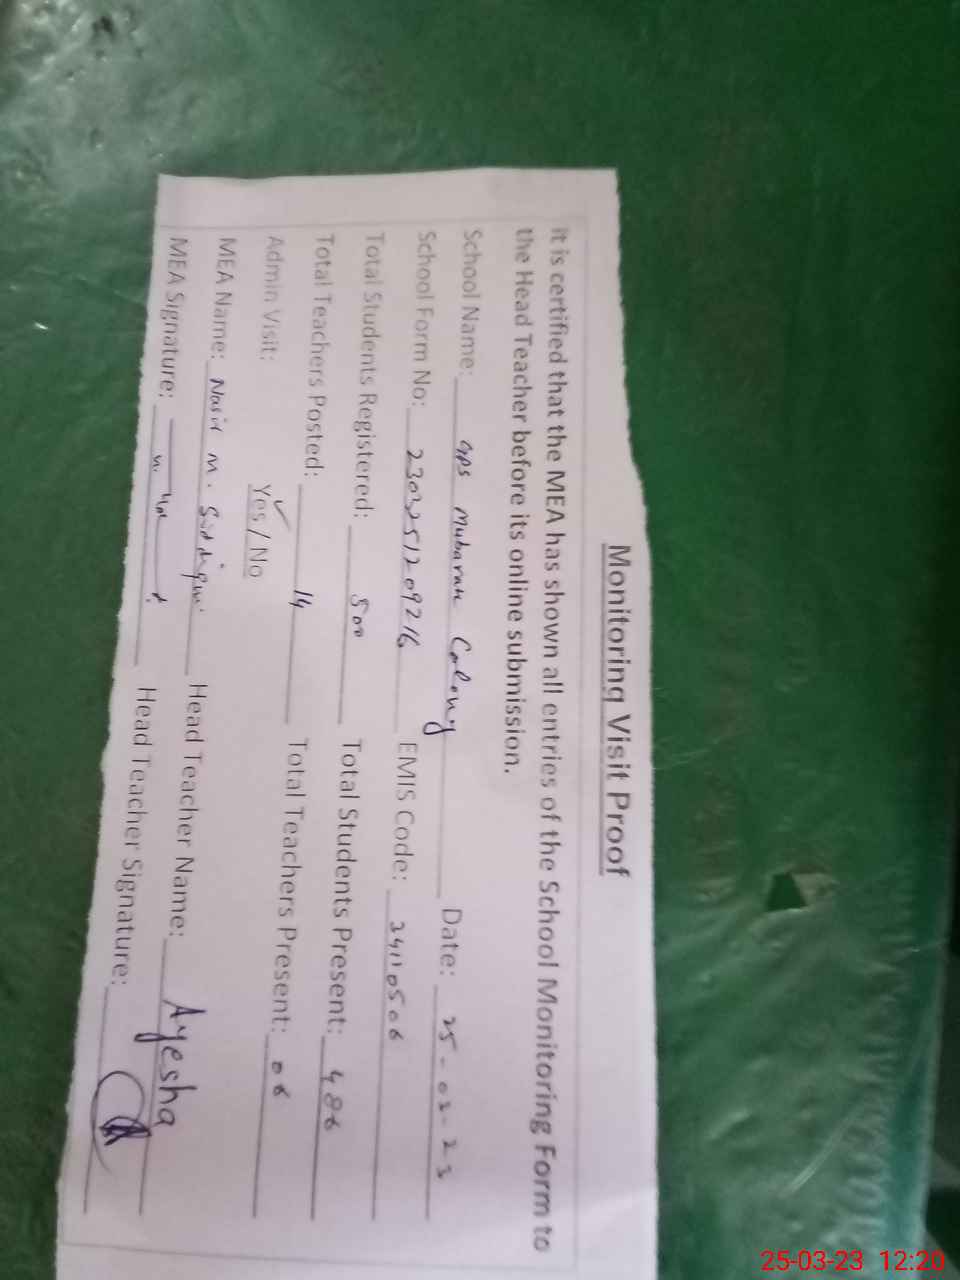 Monitoring Visit Proof
It is certified that the MEA has shown all entries of the School Monitoring Form to
the Head Teacher before its online submission.
School Name: GPS Mubarak Colony Date: 25-03-23
School Form No: EMIS Code: 34110506
Total Students Registered: 500 Total Students Present: 486
Total Teachers Posted: 14 Total Teachers Present: 06
Admin Visit: Yes / No
MEA Name: Nasir M. Siddiqui Head Teacher Name: Ayesha
MEA Signature: Head Teacher Signature:
25-03-23 12:20